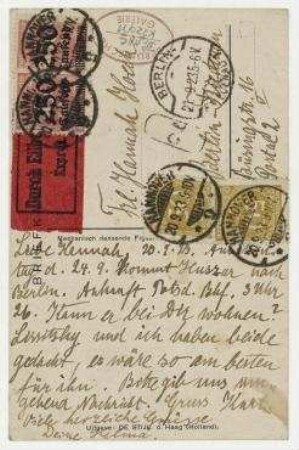 HANNOVER
250
250
Durch Eilboten
BERLIN
21.9.23.5-6V.
Frl. Hannah Höch
Berlin-
Büsingstr. 16
Portal 2
HANNOVER
20.9.23
HANNOVER
20.9.23
BRIEFK
Mechanisch dansende Figu
Liebe Hannah, 20.9.23.
tag d. 24.9. kommt Huszar nach
Berlin. Ankunft Potsd. Bhf. 3 Uhr
26. Kann er bei Dir wohnen?
Lissitzky und ich haben beide
gedacht, es wäre so am besten
für ihn. Bitte gib uns um-
gehend Nachricht. Gruss Kurt.
Viele herzliche Grüsse
Deine Helma.
Uitgave: DE STIJL d. Haag (Holland).